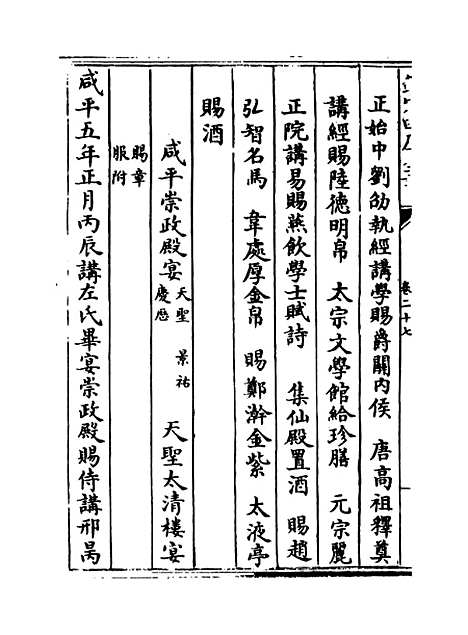 卷二十七
正始中劉劭執經講學賜爵關內侯　唐高祖釋奠
講經賜陸德明帛　太宗文學館給珍膳　元宗麗
正院講易賜燕飲學士賦詩　集仙殿置酒　賜趙
弘智名馬　韋處厚金帛　賜鄭瀚金紫　太液亭
賜酒
咸平崇政殿宴天聖　景祐慶歷　天聖太清樓宴
賜章服附
咸平五年正月丙辰講左氏畢宴崇政殿賜侍講邢昺